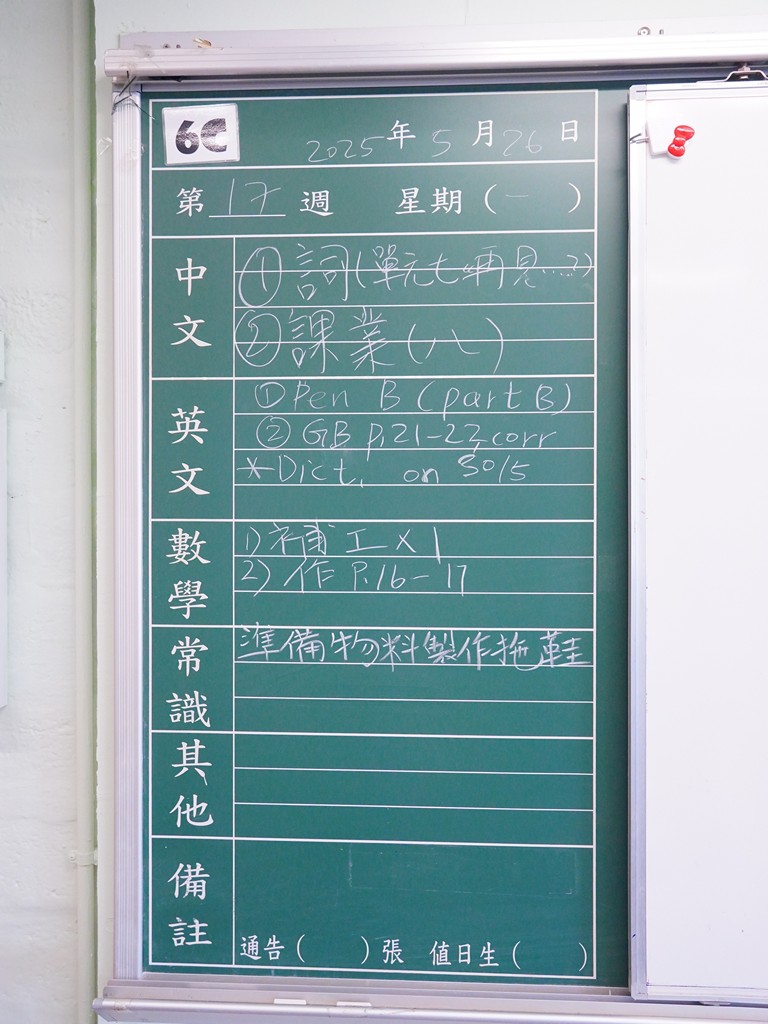 6C
2025年5月26日
第17週 星期(一)
中文
①詞(單元七"再見…")
②課業(八)
英文
① Pen B (part B)
② GB p.21-22 corr
*Dict. on 30/5
數學
1) 補工×1
2) 作 P.16-17
常識
準備物料製作拖鞋
其他
備註
通告( )張 值日生( )